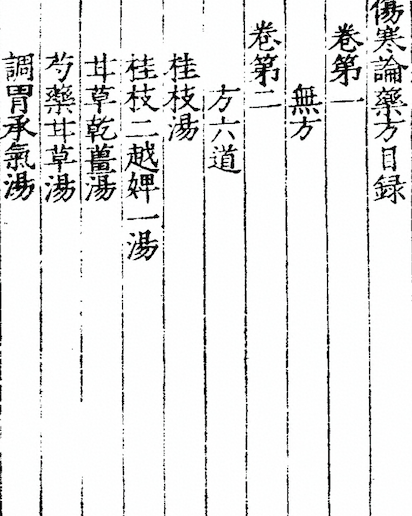 傷寒論藥方目録
卷第一
無方
卷第二
方六道
桂枝湯
桂枝二越婢一湯
甘草乾薑湯
芍藥甘草湯
調胃承氣湯